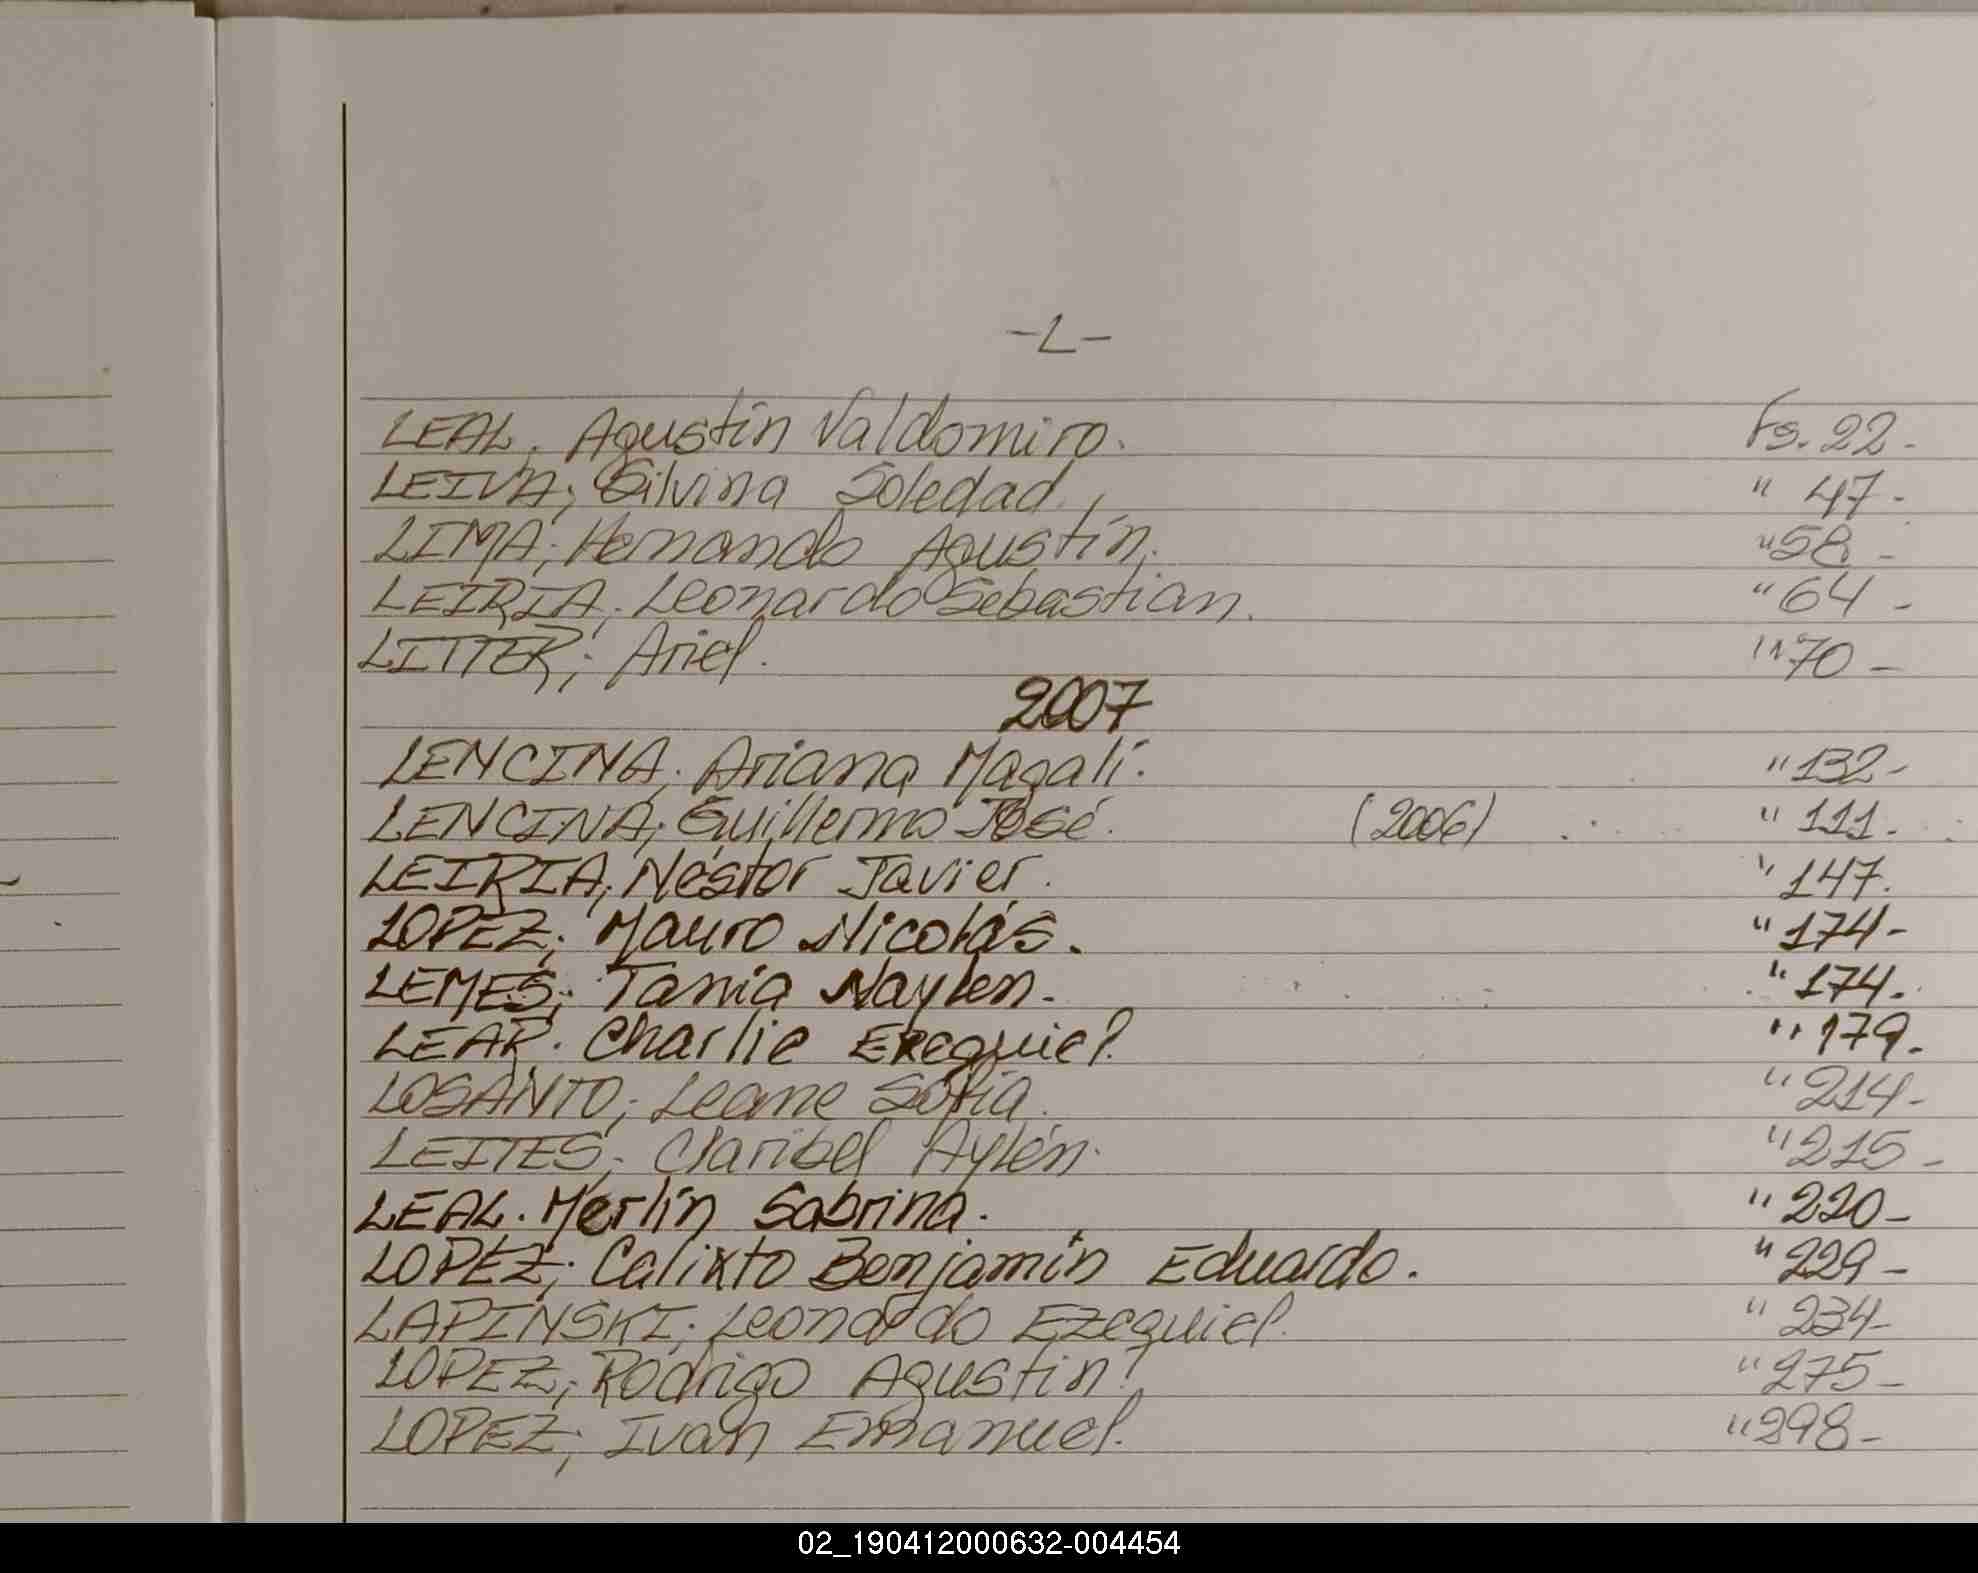 -L-
LEAL. Agustín Valdomiro. Fs. 22-
LEIVA; Silvina Soledad. " 47-
LIMA; Hernando Agustín. "58-
LEIRIA; Leonardo Sebastian. "64-
LITTER; Ariel. "70-
2007
LENCINA; Ariana Magalí. "132-
LENCINA; Guillermo José. (2006) " 111.
LEIRIA; Néstor Javier. " 147.
LOPEZ; Mauro Nicolás. " 174-
LEMES; Tania Naylen. " 174.
LEAR. Charlie Ezequiel. " 179.
LOSANTO; Leame Sofia. " 214-
LEITES; Claribel Aylén. " 215-
LEAL. Merlín Sabrina. " 220-
LOPEZ; Calixto Benjamín Eduardo. " 229-
LAPINSKI; Leonardo Ezequiel. " 234-
LOPEZ; Rodrigo Agustín. " 275-
LOPEZ; Ivan Emanuel. "298-
02_190412000632-004454